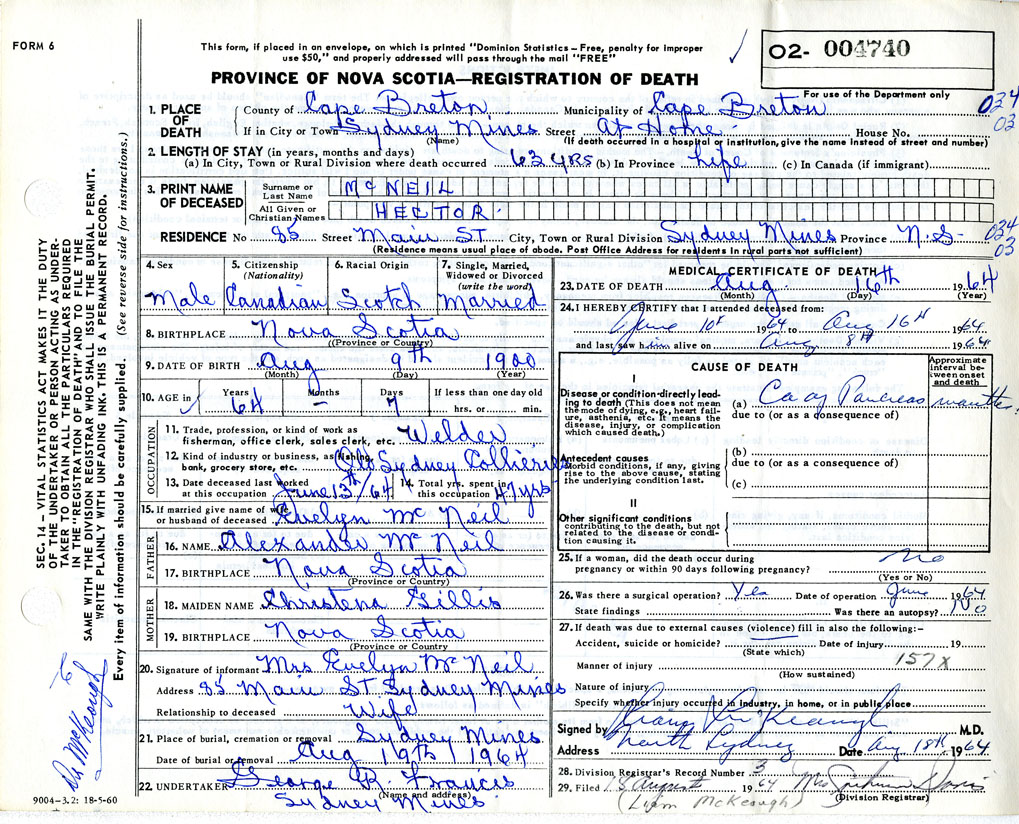 FORM 6
This form, if placed in an envelope, on which is printed "Dominion Statistics – Free, penalty for improper
use $50," and properly addressed will pass through the mail "FREE"
02- 004740
PROVINCE OF NOVA SCOTIA—REGISTRATION OF DEATH
For use of the Department only
1. PLACE OF DEATH County of Cape Breton Municipality of Cape Breton 034 03
If in City or Town Sydney Mines Street At Home. House No.
(Name) (If death occurred in a hospital or institution, give the name instead of street and number)
2. LENGTH OF STAY (in years, months and days)
(a) In City, Town or Rural Division where death occurred 63 yrs (b) In Province Life (c) In Canada (if immigrant)
3. PRINT NAME OF DECEASED
Surname or Last Name McNEIL
All Given or Christian Names HECTOR.
RESIDENCE No 85 Street Main ST City, Town or Rural Division Sydney Mines Province N.S- 034 03
(Residence means usual place of abode. Post Office Address for residents in rural parts not sufficient)
4. Sex Male
5. Citizenship (Nationality) Canadian
6. Racial Origin Scotch
7. Single, Married, Widowed or Divorced (write the word) Married
8. BIRTHPLACE Nova Scotia
(Province or Country)
9. DATE OF BIRTH Aug 9th 1900
(Month) (Day) (Year)
10. AGE in Years 64 Months – Days 7 If less than one day old hrs. or min.
OCCUPATION
11. Trade, profession, or kind of work as
fisherman, office clerk, sales clerk, etc. Welder
12. Kind of industry or business, as fishing,
bank, grocery store, etc. Old Sydney Collieries
13. Date deceased last worked at this occupation June 13th/64
14. Total yrs. spent in this occupation 47 yrs
15. If married give name of wife
or husband of deceased Evelyn Mc Neil
FATHER
16. NAME Alexander Mc Neil
17. BIRTHPLACE Nova Scotia
(Province or Country)
MOTHER
18. MAIDEN NAME Christena Gillis
19. BIRTHPLACE Nova Scotia
(Province or Country)
20. Signature of informant Mrs Evelyn Mc Neil
Address 85 Main St. Sydney Mines
Relationship to deceased Wife
21. Place of burial, cremation or removal Sydney Mines
Date of burial or removal Aug 19th 1964
22. UNDERTAKER George R. Francis
(Name and address)
Sydney Mines
MEDICAL CERTIFICATE OF DEATH
23. DATE OF DEATH Aug 16th 1964
(Month) (Day) (Year)
24. I HEREBY CERTIFY that I attended deceased from:
June 10th 1964 to Aug 16th 1964
and last saw him alive on Aug 8th 1964
CAUSE OF DEATH
Approximate interval between onset and death
I
Disease or condition directly leading to death (This does not mean
the mode of dying, e.g., heart failure, asthenia, etc. It means the
disease, injury, or complication
which caused death.)
(a) Ca of Pancreas months.
due to (or as a consequence of)
Antecedent causes
Morbid conditions, if any, giving
rise to the above cause, stating
the underlying condition last.
(b)
due to (or as a consequence of)
(c)
II
Other significant conditions
contributing to the death, but not
related to the disease or condition
causing it.
25. If a woman, did the death occur during
pregnancy or within 90 days following pregnancy? no
(Yes or No)
26. Was there a surgical operation? Yes Date of operation June 1964
State findings Was there an autopsy? No
27. If death was due to external causes (violence) fill in also the following:–
Accident, suicide or homicide? Date of injury 19
(State which)
Manner of injury 157X
(How sustained)
Nature of injury
Specify whether injury occurred in industry, in home, or in public place
Signed by M.D.
Address North Sydney Date Aug 18th 1964
28. Division Registrar's Record Number 3
29. Filed 18 August 1964 Mrs
(Division Registrar)
(Liam McKeough)
SEC. 14—VITAL STATISTICS ACT MAKES IT THE DUTY
OF THE UNDERTAKER OR PERSON ACTING AS UNDERTAKER
TO OBTAIN ALL THE PARTICULARS REQUIRED
IN THE "REGISTRATION OF DEATH" AND TO FILE THE
SAME WITH THE DIVISION REGISTRAR WHO SHALL ISSUE THE BURIAL PERMIT.
WRITE PLAINLY WITH UNFADING INK. THIS IS A PERMANENT RECORD.
Every item of information should be carefully supplied. (See reverse side for instructions.)
To
Dr McKeough
9004-3.2: 18-5-60